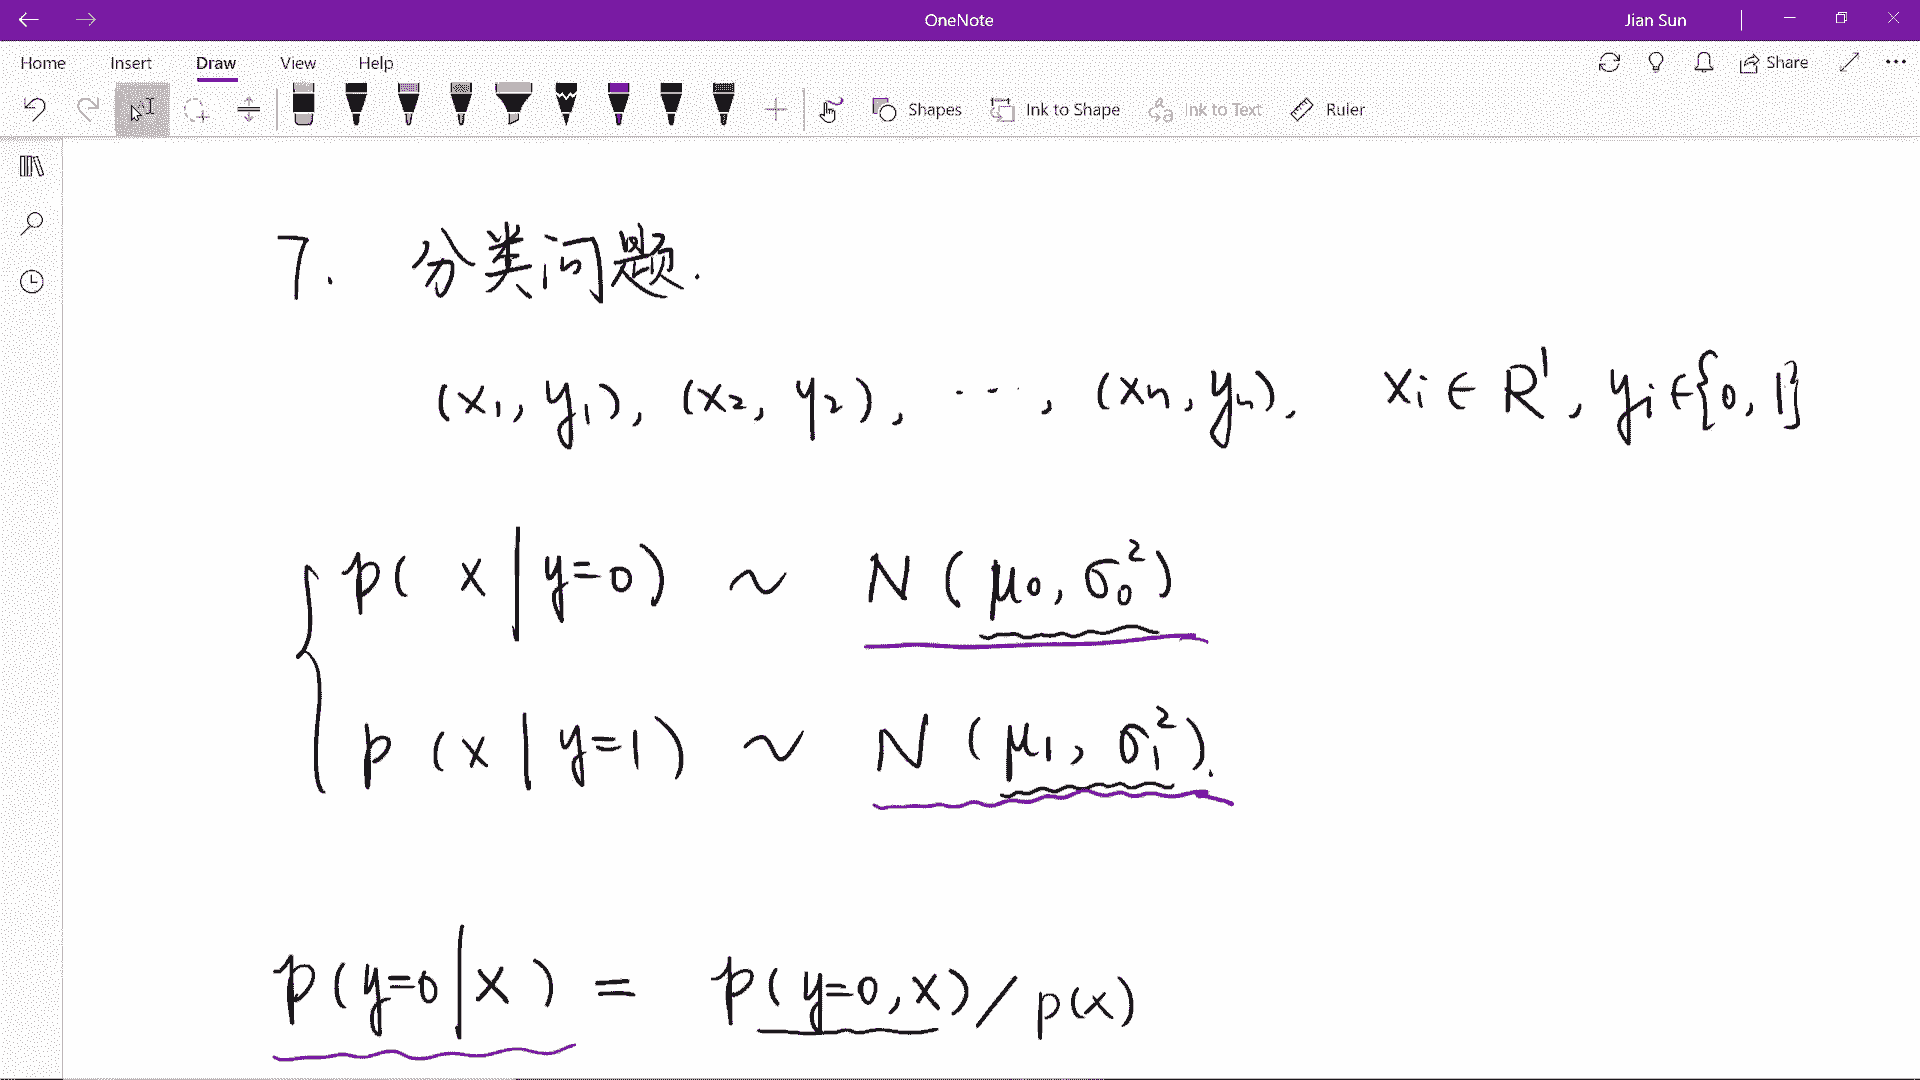 OneNote
Jian Sun
Home Insert Draw View Help
Share
Shapes Ink to Shape Ink to Text Ruler
7. 分类问题.
(x₁, y₁), (x₂, y₂), ⋯, (xₙ, yₙ), xᵢ ∈ R¹, yᵢ ∈ {0, 1}
p( x | y=0 ) ~ N ( μ₀, σ₀² )
p (x | y=1) ~ N ( μ₁, σ₁² ).
p(y=0 | x ) = p( y=0, x) / p(x)